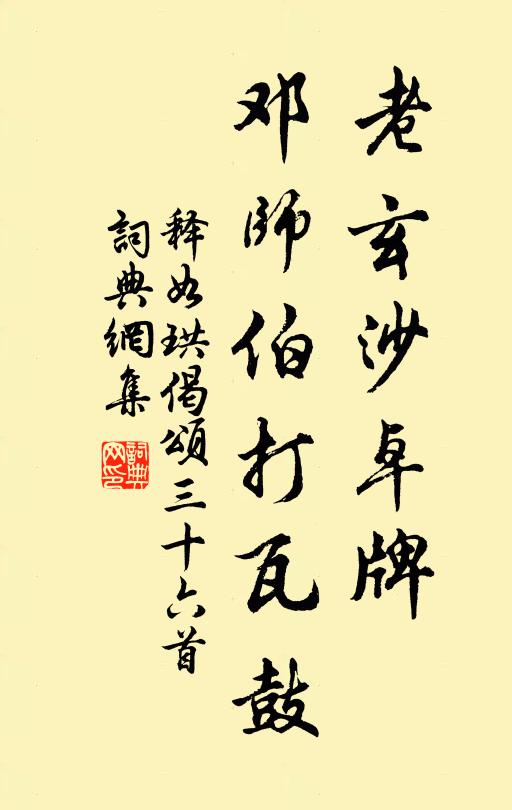 老玄沙卓牌
邓師伯打瓦鼓
释如珙偈頌三十六首
詞典網集
詞典网印